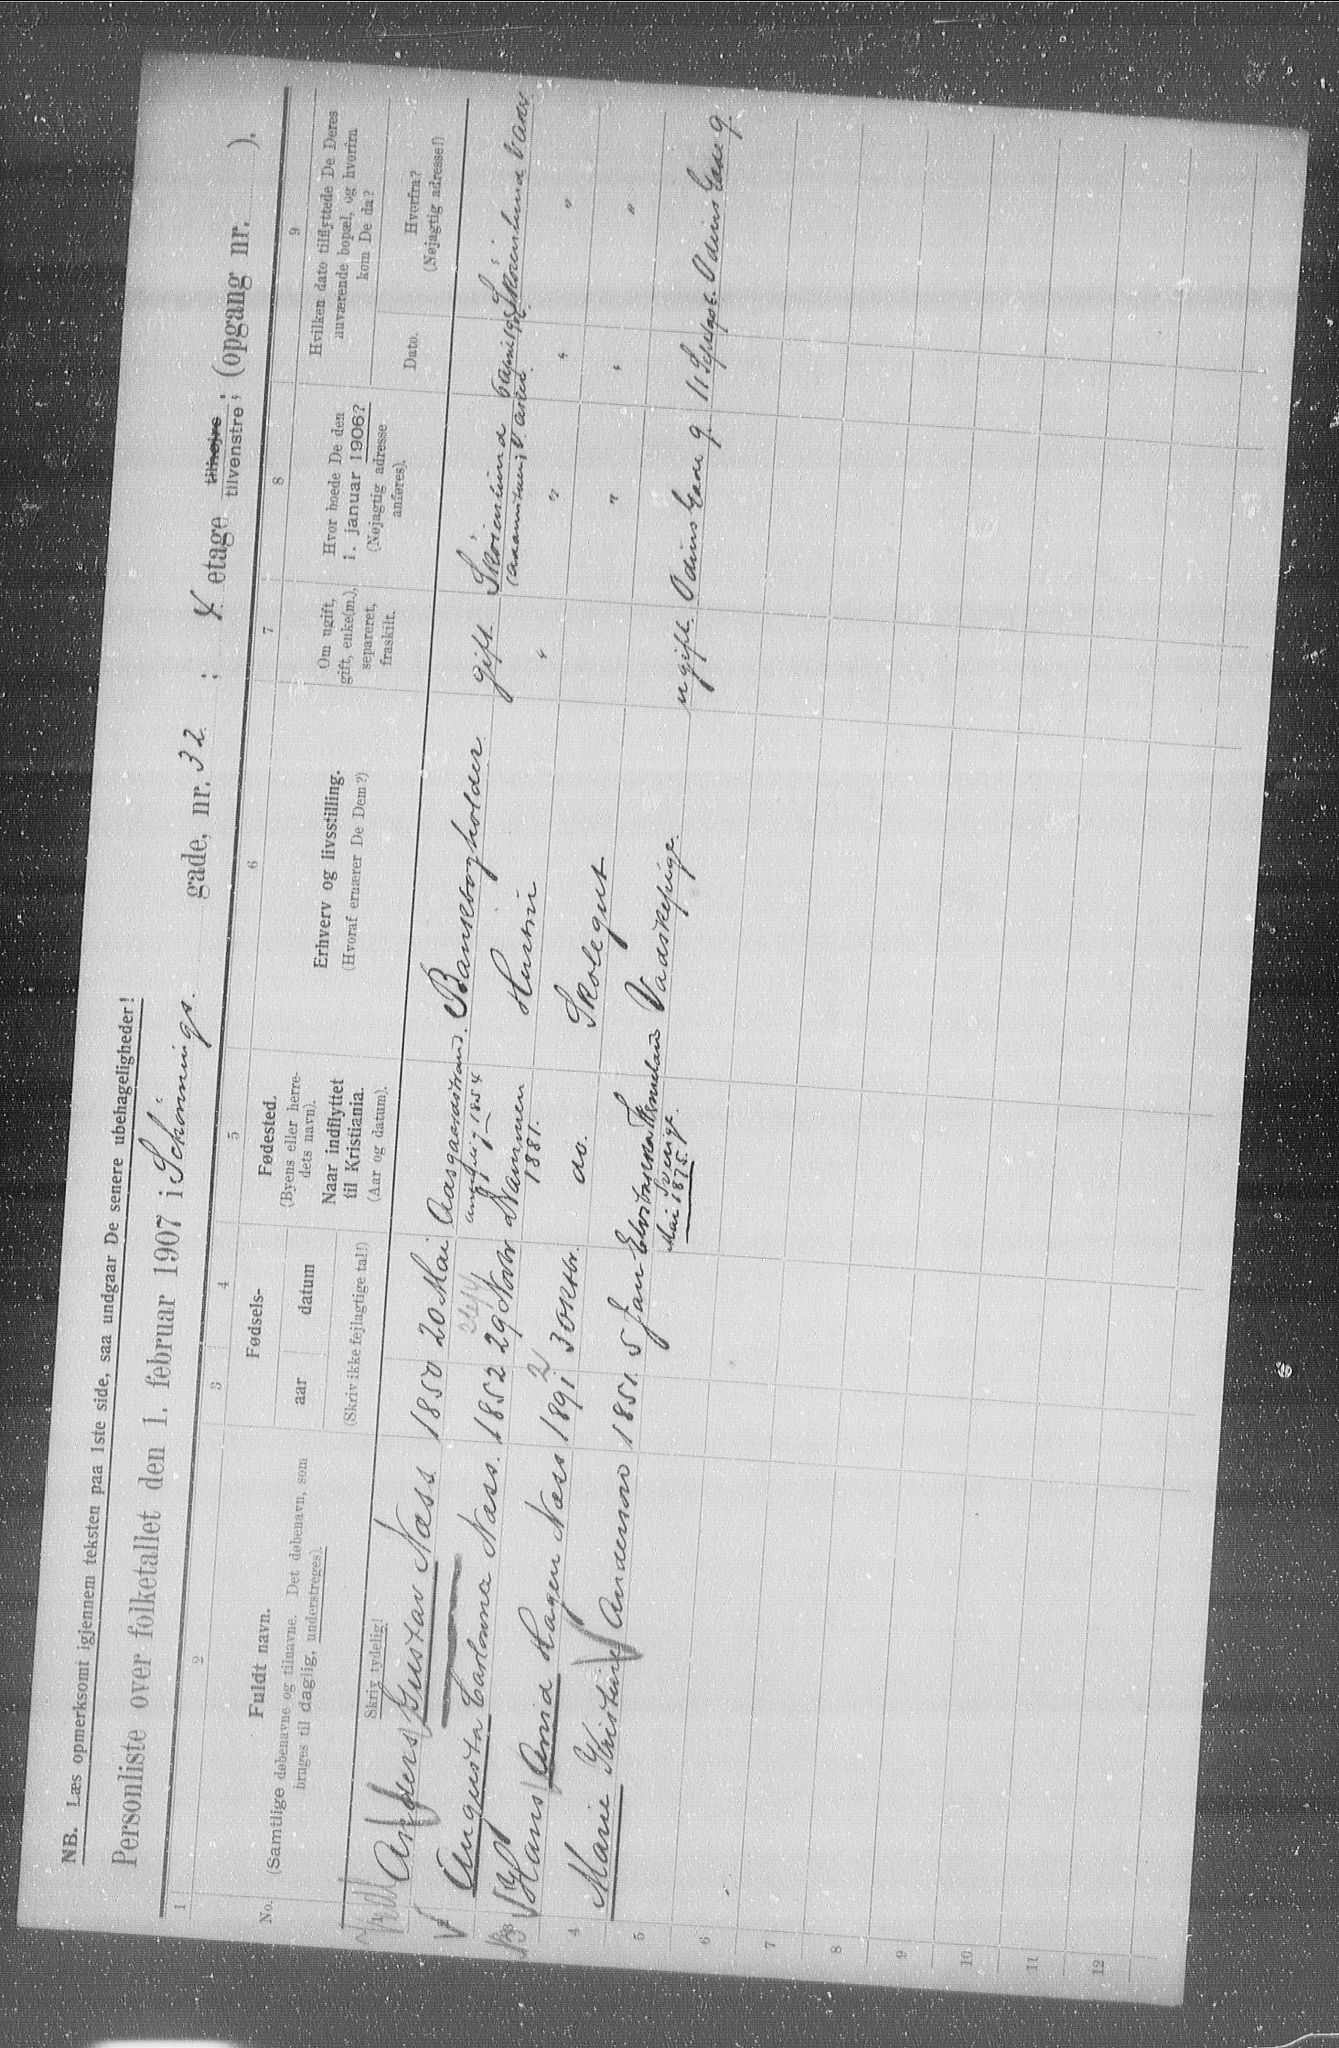 NB. Læs opmerksomt igjennem teksten paa 1ste side, saa undgaar De senere ubehageligheder!
Personliste over folketallet den 1. februar 1907 i Schönnings gade, nr. 32 ; 4 etage tilhøjre tilvenstre ; (opgang nr. ).
1 2 3 4 5 6 7 8 9
No.
Fuldt navn.
(Samtlige døbenavne og tilnavne. Det døbenavn, som
bruges til daglig, understreges).
Skriv tydelig!
Fødsels-
aar datum
(Skriv ikke fejlagtige tal!)
Fødested.
(Byens eller herre-
dets navn).
Naar indflyttet
til Kristiania.
(Aar og datum).
Erhverv og livsstilling.
(Hvoraf ernærer De Dem?)
Om ugift,
gift, enke(m.),
separeret,
fraskilt.
Hvor boede De den
1. januar 1906?
(Nøjagtig adresse
anføres).
Hvilken dato tilflyttede De Deres
nuværende bopæl, og hvorfra
kom De da?
Dato.
Hvorfra?
(Nøjagtig adresse!)
Anders Gustav Næss 1850 20 Mai Aasgaardstrand. 1854 Bankbogholder. gift. Skøienlund
Augusta Carolina Næss. 1852 29 Novbr Drammen 1881. Hustru " " " "
3 Hans Arna Hagen Næss 1891 2 30 Oktbr. do. Skolegut " " "
4 Marie Kristine Anderson 1851. 5 Jan Sverige Mai 1875. Vadskepige. ugift. Odins Gade 9. 11 Septb 1906. Odins Gade 9.
5
6
7
8
9
10
11
12